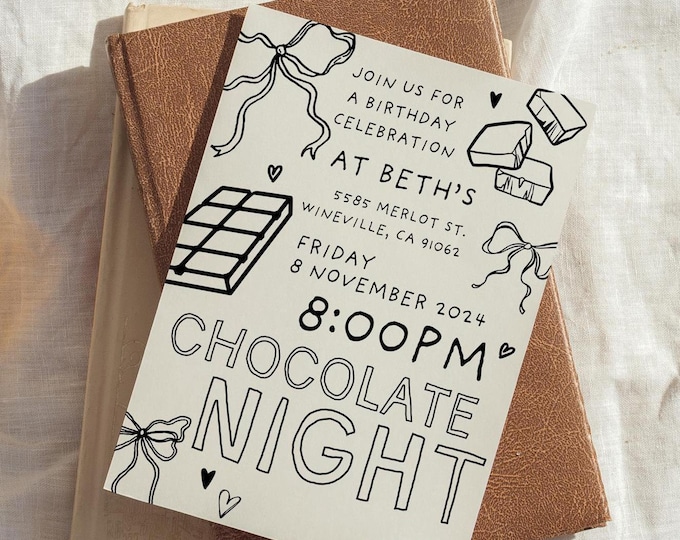 JOIN US FOR
A BIRTHDAY
CELEBRATION
AT BETH'S
5585 MERLOT ST.
WINEVILLE, CA 91062
FRIDAY
8 NOVEMBER 2024
8:00PM
CHOCOLATE
NIGHT